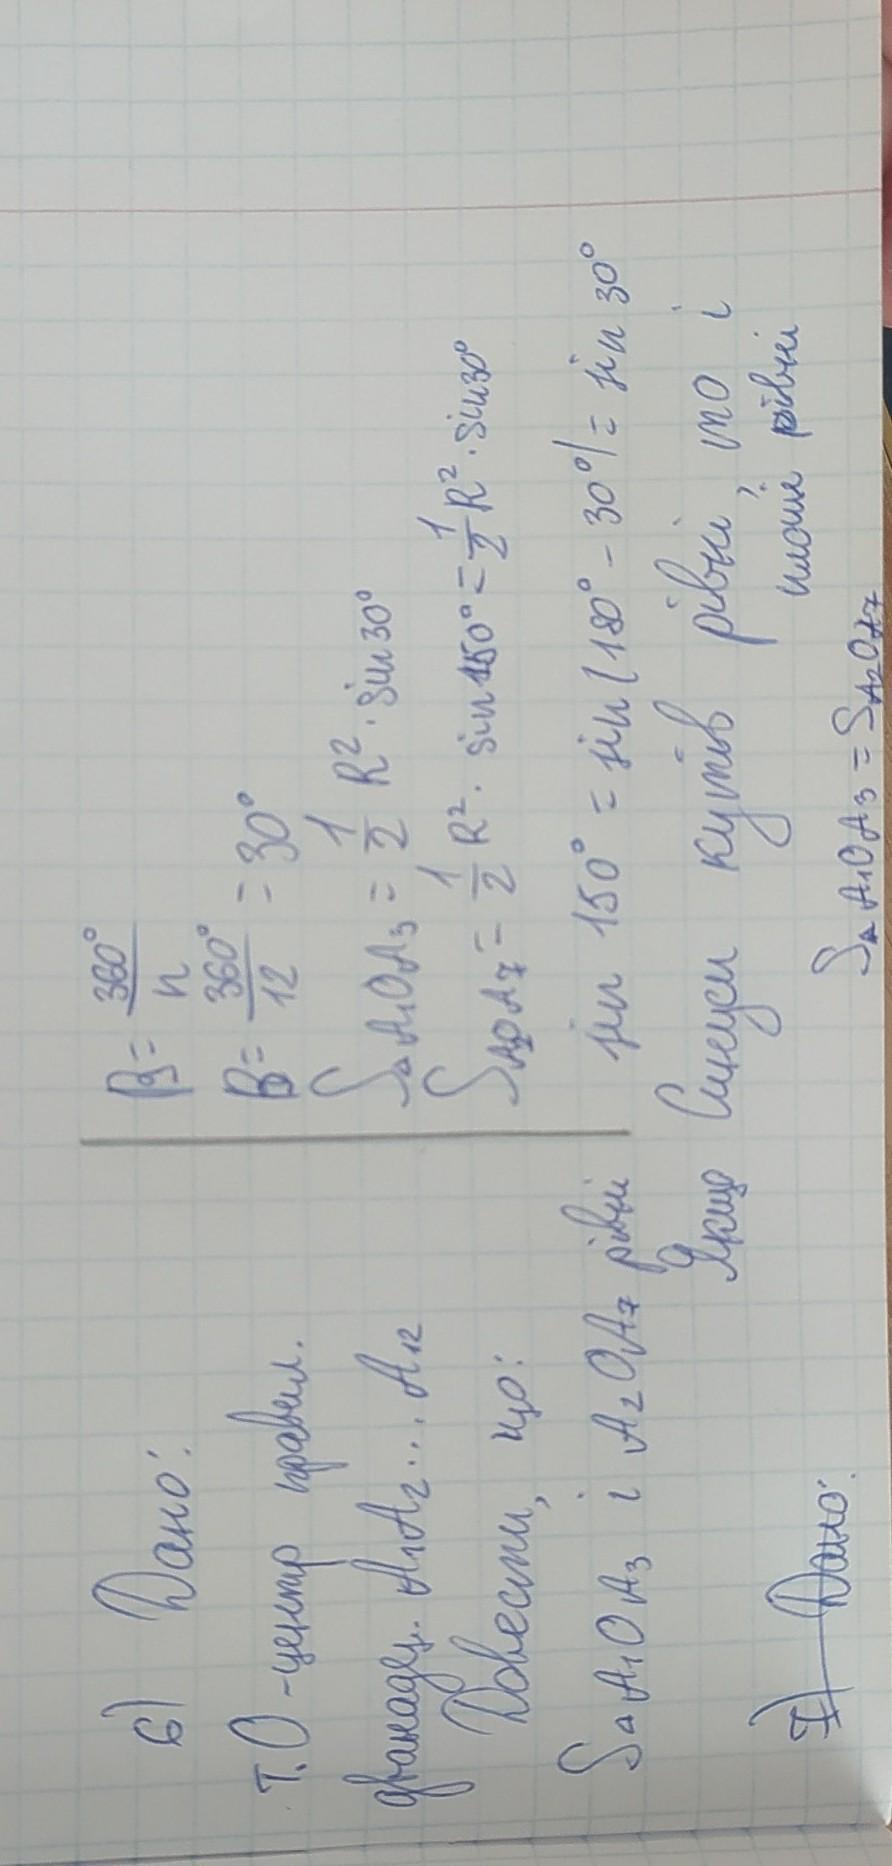 6) Дано:
т. O - центр правил.
дванадц. A₁A₂...A₁₂
Довести, що:
S△A₁OA₃ і A₂OA₇ рівні
β = 360°/n
β = 360°/12 = 30°
S△A₁OA₃ = 1/2 R² · sin30°
S A₂OA₇ = 1/2 R² · sin150° = 1/2 R² · sin30°
sin 150° = sin(180° - 30°) = sin 30°
Якщо Синуси кутів рівні, то і
площі рівні
S△A₁OA₃ = S A₂OA₇
7) Дано: